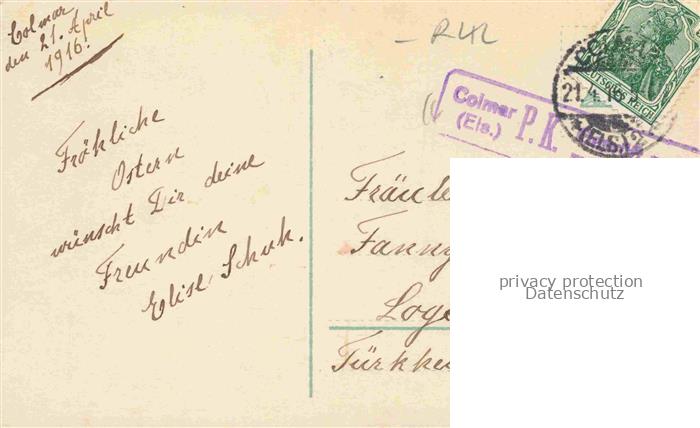 Colmar
den 21. April
1916.
Fröhliche
Ostern
wünscht Dir deine
Freundin
Elise Schuh.
Colmar
(Els.)
P.K.
21.4.16
(ELS.)
DEUTSCHES REICH
Fräule
Fanny
Loge
Türkhe
privacy protection
Datenschutz